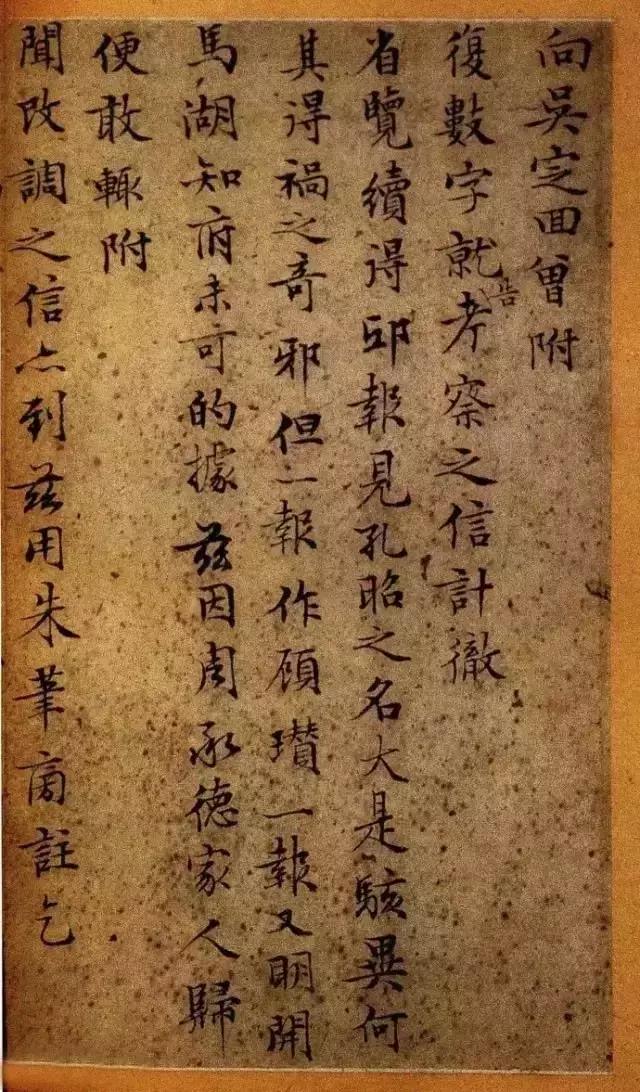 向吳定回曾附
復數字就告考察之信計徹
省覽續得邸報見孔昭之名大是駭異何
其得禍之奇邪但一報作顧瓚一報又明開
馬湖知府未可的據茲因周承德家人歸
便敢輒附
聞改調之信亦到茲用朱筆商註乞